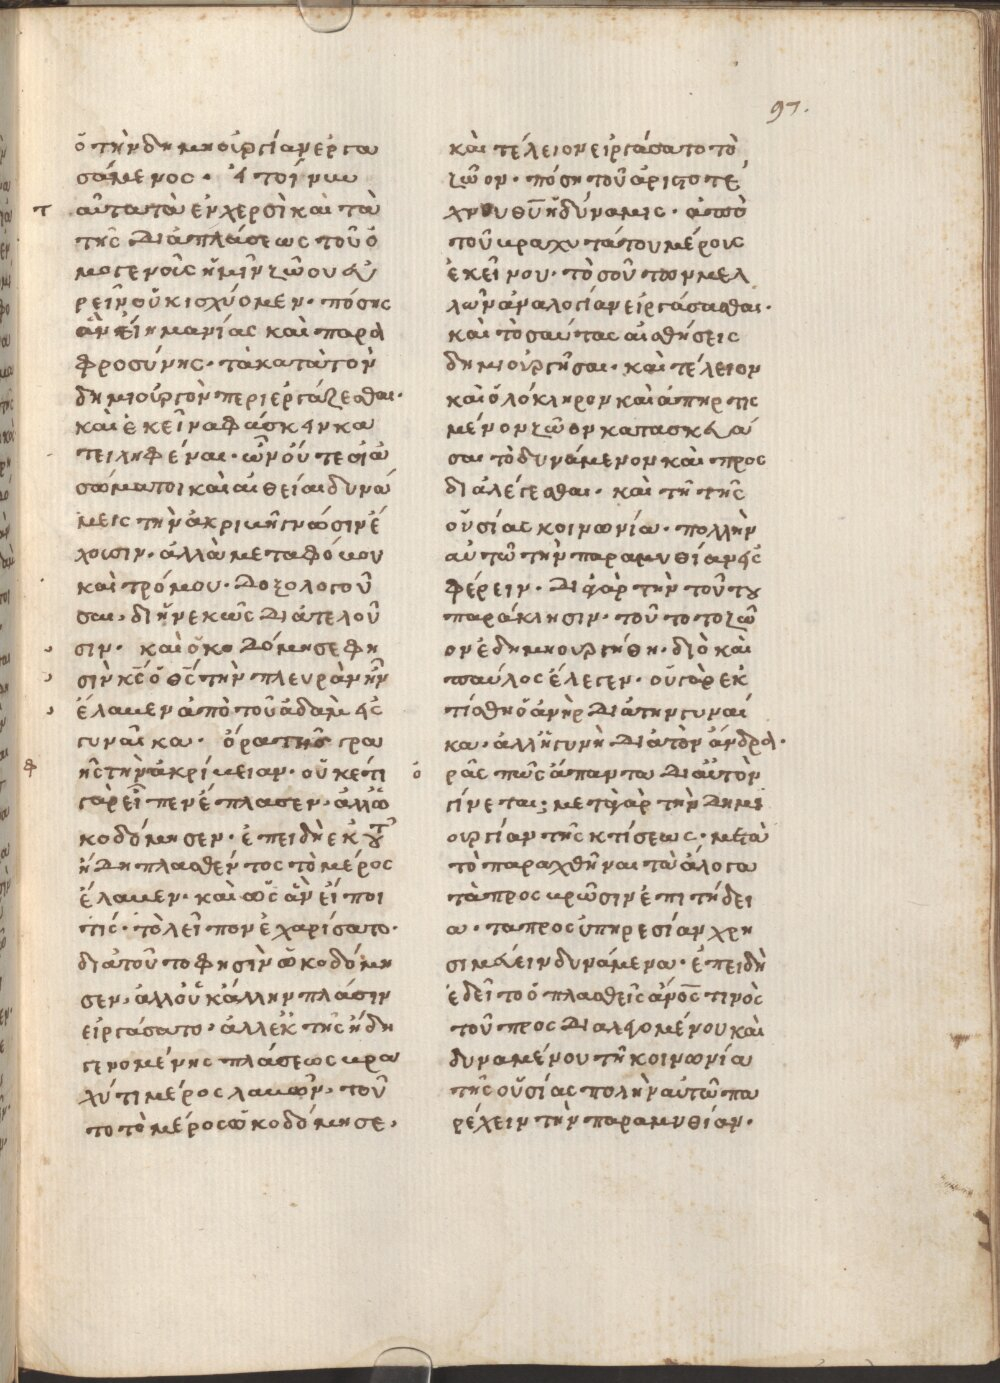 97.
ὁ τὴν δημιουργίαν ἐργα
σάμενος. εἰ τοίνυν
ταῦτα τὰ ἐν χερσὶ καὶ τὰ
τῆς διαπλάσεως τοῦ ὁ
μογενοῦς ἡμῖν ζώου εὑ
ρεῖν οὐκ ἰσχύομεν. πόσης
ἂν εἴη μανίας καὶ παρα
φροσύνης. τὰ κατὰ τὸν
δημιουργὸν περιεργάζεσθαι.
καὶ ἐκεῖνα φάσκειν κα
τειληφέναι. ὧν οὔτε αἱ ἀ
σώματοι καὶ αἱ θεῖαι δυνά
μεις τὴν ἀκριβῆ γνῶσιν ἔ
χουσιν. ἀλλὰ μετὰ φόβου
καὶ τρόμου. δοξολογοῦ
σαι, διηνεκῶς διατελοῦ
σιν. καὶ ὠκοδόμησε φη
σὶν κ̅ς̅ ὁ θ̅ς̅ τὴν πλευρὰν ἣν
ἔλαβεν ἀπὸ τοῦ ἀδὰμ εἰς
γυναῖκα. ὅρα τῆς γρα
φῆς τὴν ἀκρίβειαν. οὐκέτι
γὰρ εἶπεν ἔπλασεν. ἀλλ' ὠ
κοδόμησεν. ἐπειδὴ ἐκ τοῦ
ἤδη πλασθέντος τὸ μέρος
ἔλαβεν. καὶ ὡς ἂν εἴποι
τίς. τὸ λεῖπον ἐχαρίσατο.
διὰ τοῦτο φησὶν ὠκοδόμη
σεν. ἀλλ' οὐκ ἄλλην πλάσιν
εἰργάσατο. ἀλλ' ἐκ τῆς ἤδη
γενομένης πλάσεως βρα
χύ τι μέρος λαβὼν. τοῦ
το τὸ μέρος ὠκοδόμησε,
καὶ τέλειον εἰργάσατο τὸ
ζῶον. πόση τοῦ ἀριστοτέ
χνου θ̅υ̅ ἡ δύναμις. ἀπὸ
τοῦ βραχυτάτου μέρους
ἐκείνου. τοσοῦτων μελ
λῶν ἀναλογίαν εἰργάσασθαι.
καὶ τοσαύτας αἰσθήσεις
δημιουργῆσαι. καὶ τέλειον
καὶ ὁλόκληρον καὶ ἀπηρτισ
μένον ζῶον κατασκευά
σαι τὸ δυνάμενον καὶ προς
διαλέγεσθαι. καὶ τῇ τῆς
οὐσίας κοινωνία. πολλὴν
αὐτῶ τὴν παραμυθίαν εἰς
φέρειν. διὰ γὰρ τὴν τούτου
παράκλησιν. τοῦτο τὸ ζῶ
ον ἐδημιουργήθη. διὸ καὶ
παῦλος ἔλεγεν. οὐ γὰρ ἐκ
τίσθη ὁ ἀνὴρ διὰ τὴν γυναῖ
κα. ἀλλ' ἡ γυνὴ διὰ τὸν ἄνδρα.
ὁρᾶς πῶς ἅπαντα δι' αὐτὸν
γίνεται; μετὰ γὰρ τὴν δημι
ουργίαν τῆς κτίσεως. μετὰ
τὸ παραχθῆναι τὰ ἄλογα
τὰ προς βρῶσιν ἐπιτήδει
α. τὰ προς ὑπηρεσίαν χρη
σιμεύειν δυνάμενα. ἐπειδὴ
ἐδεῖτο ὁ πλασθεὶς ἄν̅ο̅ς̅ τινὸς
τοῦ προσδιαλεγομένου καὶ
δυναμένου τῇ κοινωνία
τῆς οὐσίας πολὴν αὐτῶ πα
ρέχειν τὴν παραμυθίαν.